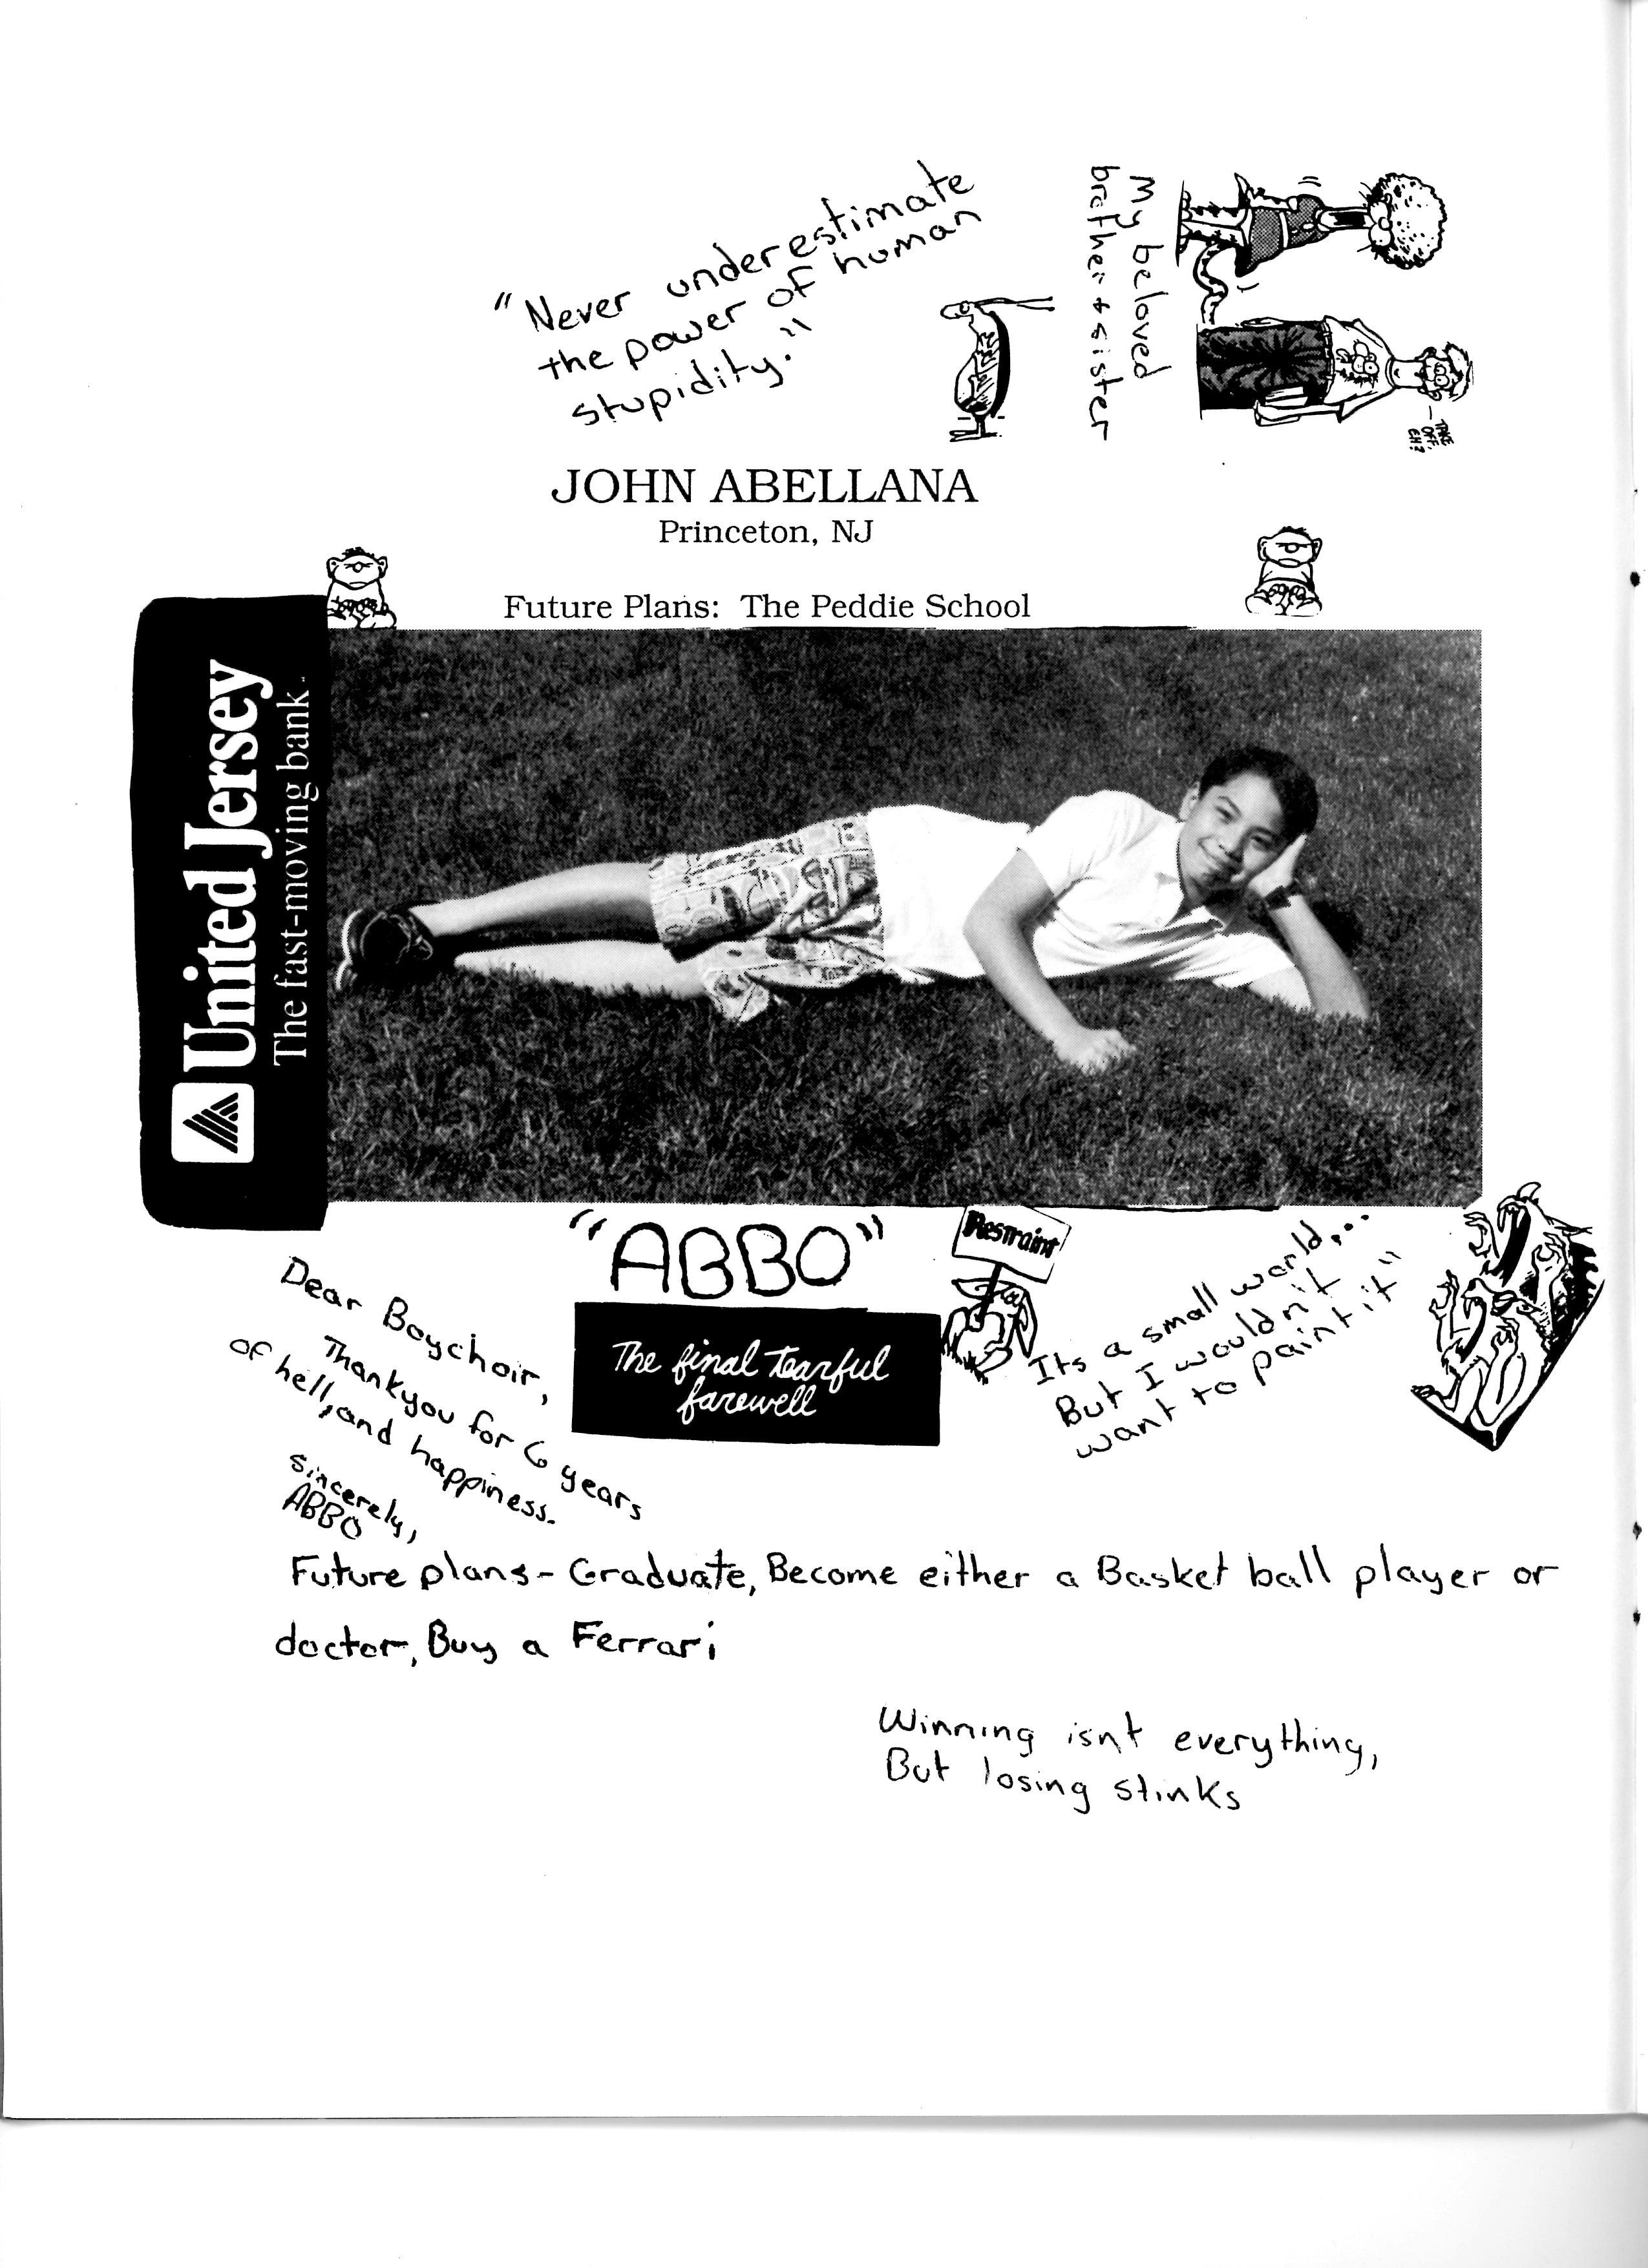 "Never underestimate
the power of human
stupidity."
My beloved
brother & sister
TAKE
OFF,
EH?
JOHN ABELLANA
Princeton, NJ
Future Plans: The Peddie School
United Jersey
The fast-moving bank
"ABBO"
Restraint
The final tearful
farewell
Dear Boychoir,
Thankyou for 6 years
of hell, and happiness.
sincerely,
ABBO
Its a small world,...
But I wouldn't
want to paint it"
Future plans - Graduate, Become either a Basket ball player or
doctor, Buy a Ferrari
Winning isnt everything,
But losing stinks